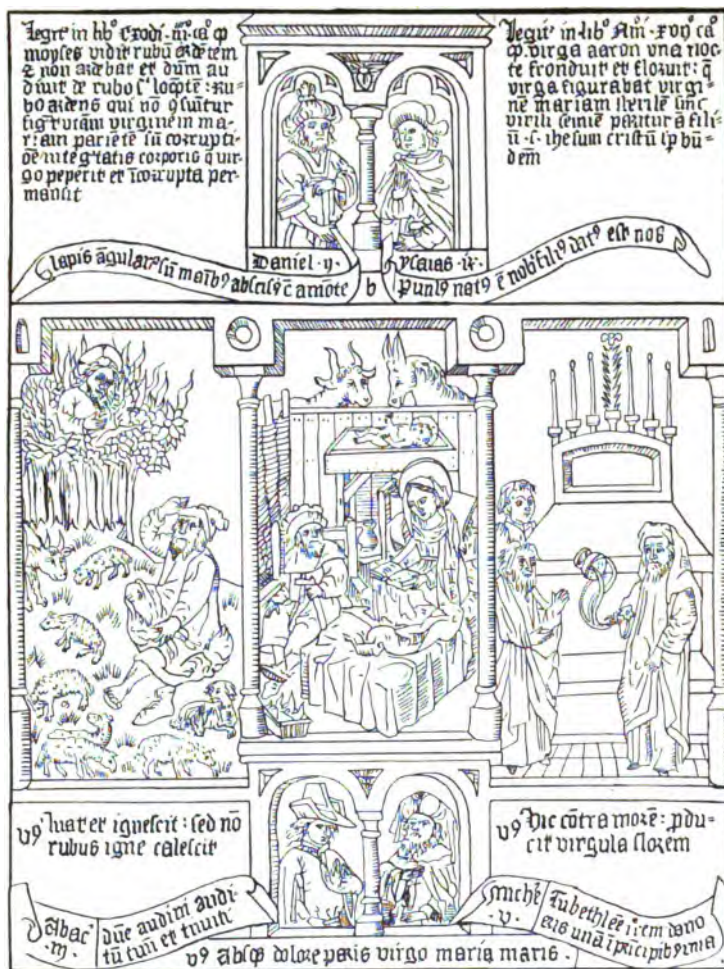 Legit in libo exodi · iii · ca° ꝙ
moyses vidit rubū ardētem
& non ardebat et dūm au
diuit de rubo loqētē : ru-
bo ardens qui nō ꝯsumitur
figurat virginē in ma-
riam parietē sī corrupti-
ōe integritatis corporis q̄ vir-
go peperit et īcorrupta per
mansit
Legit in libo Nūi · xvii ca°
ꝙ virga aaron vna noc
te fronduit et floruit : q̄
virga figurabat virgi-
nē mariam sterilē sine
virili semie paritura fili-
ū · s · ihesum cristū sp bn̄-
dem
lapis āgular⁹ sū manib⁹ abscis⁹ ē amōte
Daniel · ij ·
b
ysaias · ix ·
puul⁹ nat⁹ ē nob fili⁹ dat⁹ est nob
v⁹ lucet et ignescit : sed nō
rubus igne calescit
v⁹ hic cōtra morē : pdu-
cit virgula florem
Abac
· iii ·
dn̄e audiui audi-
tū tuū et timui
miche
· v ·
Tu bethleē
v⁹ absqꝫ dolore paris virgo maria maris ·